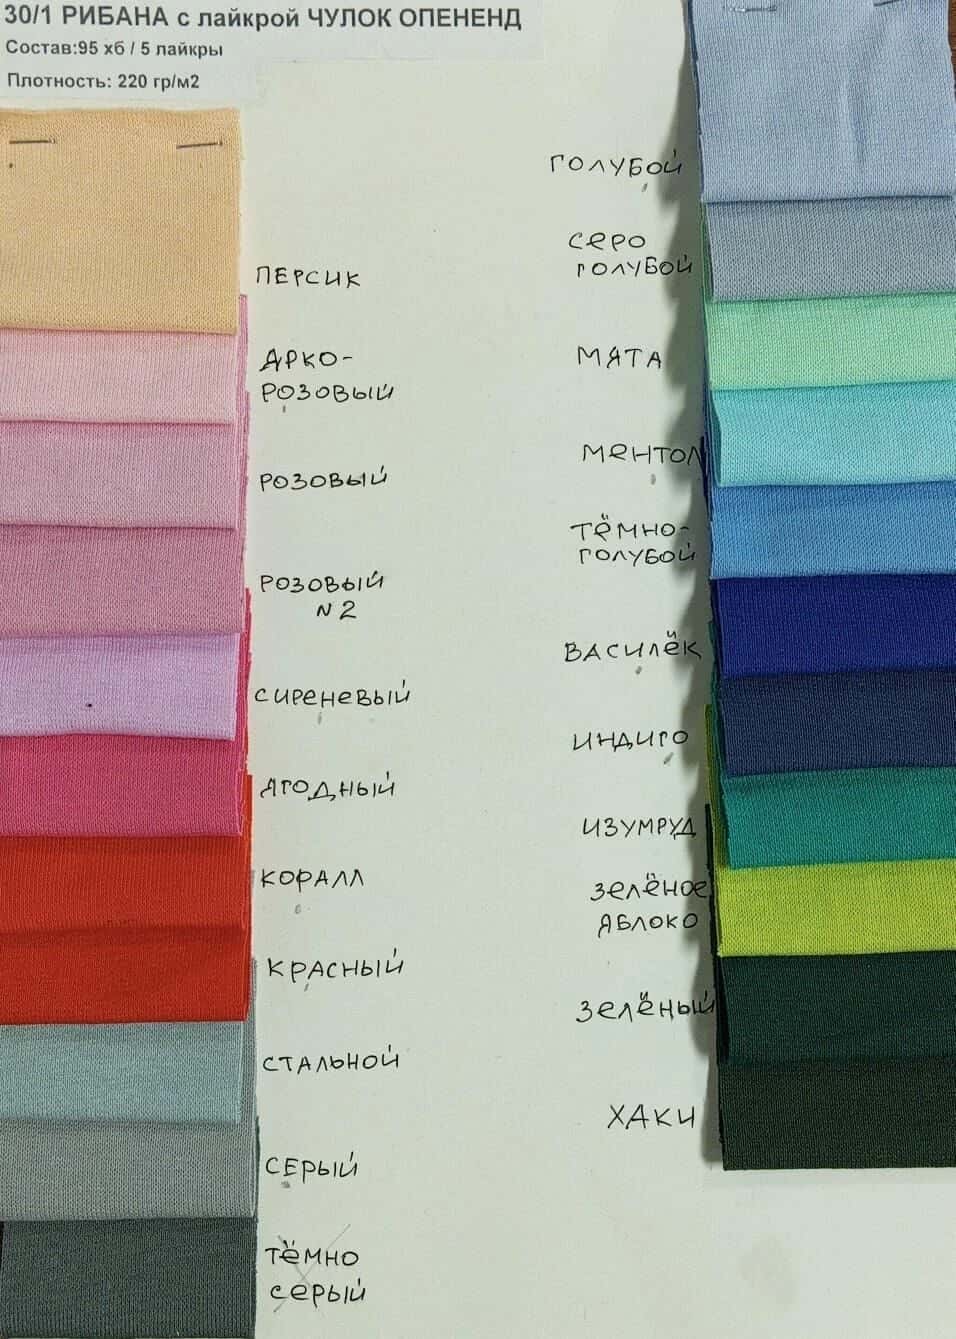 30/1 РИБАНА с лайкрой ЧУЛОК ОПЕНЕНД
Состав:95 хб / 5 лайкры
Плотность: 220 гр/м2
ПЕРСИК
ЯРКО-
РОЗОВЫЙ
РОЗОВЫЙ
РОЗОВЫЙ
N 2
СИРЕНЕВЫЙ
ЯГОДНЫЙ
КОРАЛЛ
КРАСНЫЙ
СТАЛЬНОЙ
СЕРЫЙ
ТЁМНО
СЕРЫЙ
ГОЛУБОЙ
СЕРО
ГОЛУБОЙ
МЯТА
МЕНТОЛ
ТЁМНО-
ГОЛУБОЙ
ВАСИЛЁК
ИНДИГО
ИЗУМРУД
ЗЕЛЁНОЕ
ЯБЛОКО
ЗЕЛЁНЫЙ
ХАКИ